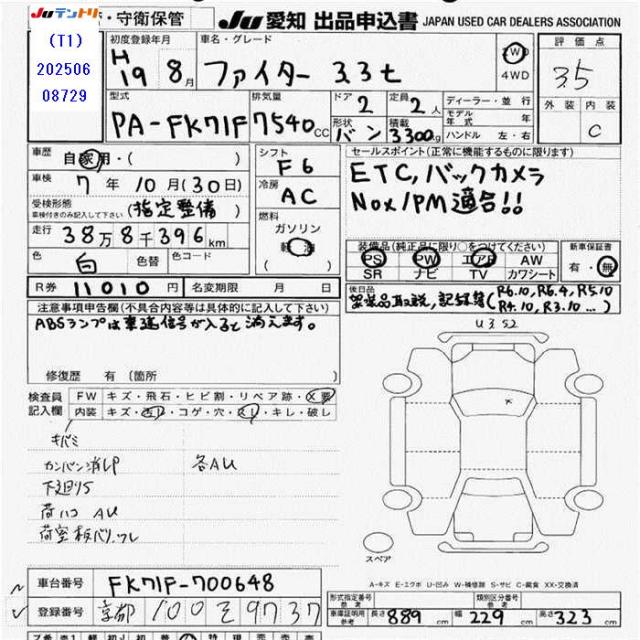 Juテントリ・守衛保管
(T1)
202506
08729
Ju 愛知 出品申込書 JAPAN USED CAR DEALERS ASSOCIATION
初度登録年月
H19 8月
車名・グレード
ファイター 3.3t
2WD
4WD
評価点
3.5
外装 内装
C
型式
PA-FK71F
排気量
7540cc
ドア 2
定員 2人
形状 バン
積載 3300kg
ディーラー・並行
モデル年式 年
ハンドル 左・右
車歴 自家用・( )
車検 7年10月(30日)
受検形態
車検付きのみ記入して下さい (指定整備)
走行 38万8千396km
色 白 色替 色コード
R券 11010円 名変期限 月 日
シフト
F6
冷房
AC
燃料
ガソリン
軽油
セールスポイント(正常に機能するものに限ります)
ETC,バックカメラ
Nox/PM適合!!
装備品(純正品に限り○をつけてください)
PS PW エアB AW
SR ナビ TV カワシート
新車保証書
有・無
後日品
装備品取説,記録簿(R6.10,R6.4,R5.10
R4.10,R3.10...)
注意事項申告欄(不具合内容等は具体的に記入して下さい)
ABSランプは車速信号が入ると消えます。
修復歴 有(箇所
検査員記入欄
FW キズ・飛石・ヒビ割・リペア跡・X要
内装 キズ・汚レ・コゲ・穴・スレ・キレ・破レ
キバミ
カンバン消しP 各AU
下廻りS
荷ハコ AU
荷室板バリ,ワレ
U3 S2
スペア
A-キズ E-エクボ U-凹み W-補修跡 S-サビ C-腐食 XX-交換済
車台番号 FK71F-700648
登録番号 京都 100 そ 9737
形式指定番号 参考
類別区分番号 参考
車庫証明用参考 長さ 889cm 幅 229cm 高さ 323cm